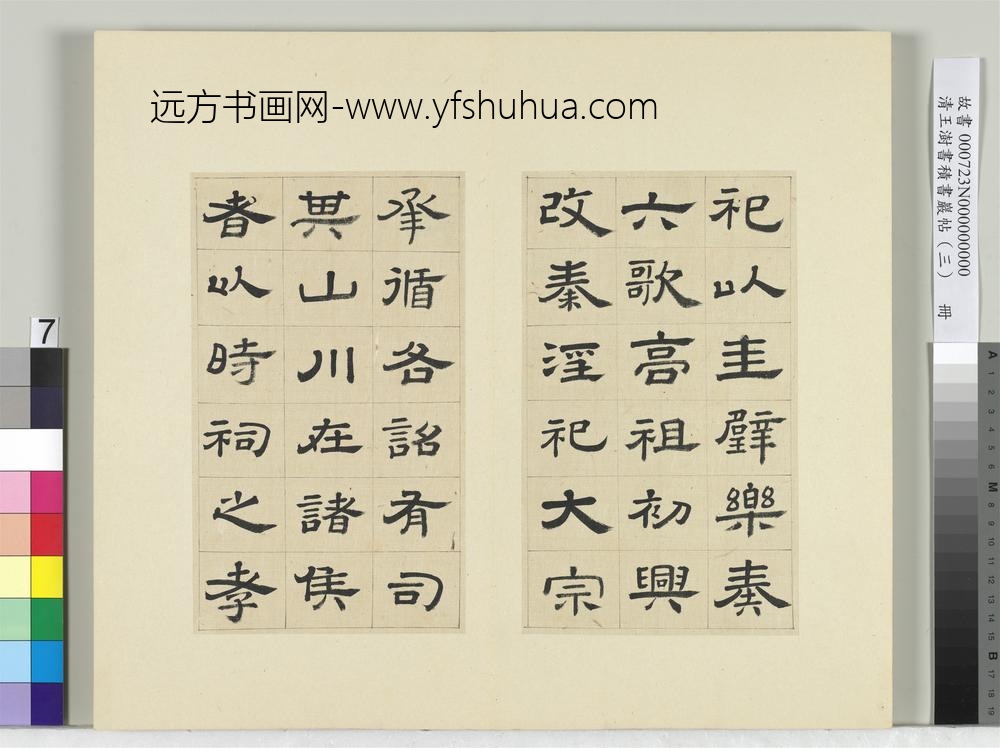 远方书画网-www.yfshuhua.com
祀以圭璧樂奏
六歌高祖初興
改秦淫祀大宗
承循各詔有司
其山川在諸侯
者以時祠之孝
故書 000723N000000000
清王澍書積書巖帖(三) 冊
7
A 1 2 3 4 5 6 M 8 9 10 11 12 13 14 15 B 17 18 19